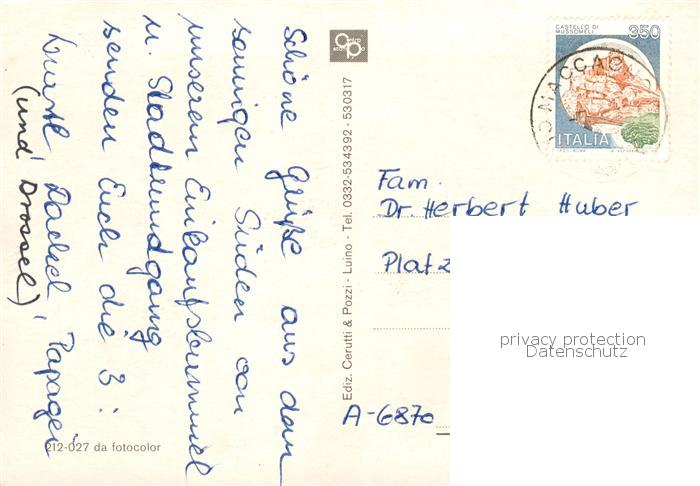 Schöne Grüße aus dem
sonnigen Süden von
unserem Einkaufsbummel
u. Stadtrundgang
senden Euch die 3:
Wurstl, Dackel, Papagei
(und Drossel)
212-027 da fotocolor
Ediz. Cerutti & Pozzi - Luino - Tel. 0332-534392 - 530317
CASTELLO DI
MUSSOMELI
350
ITALIA
MACCAGNO
Fam.
Dr. Herbert Huber
Platz
A-6870
privacy protection
Datenschutz